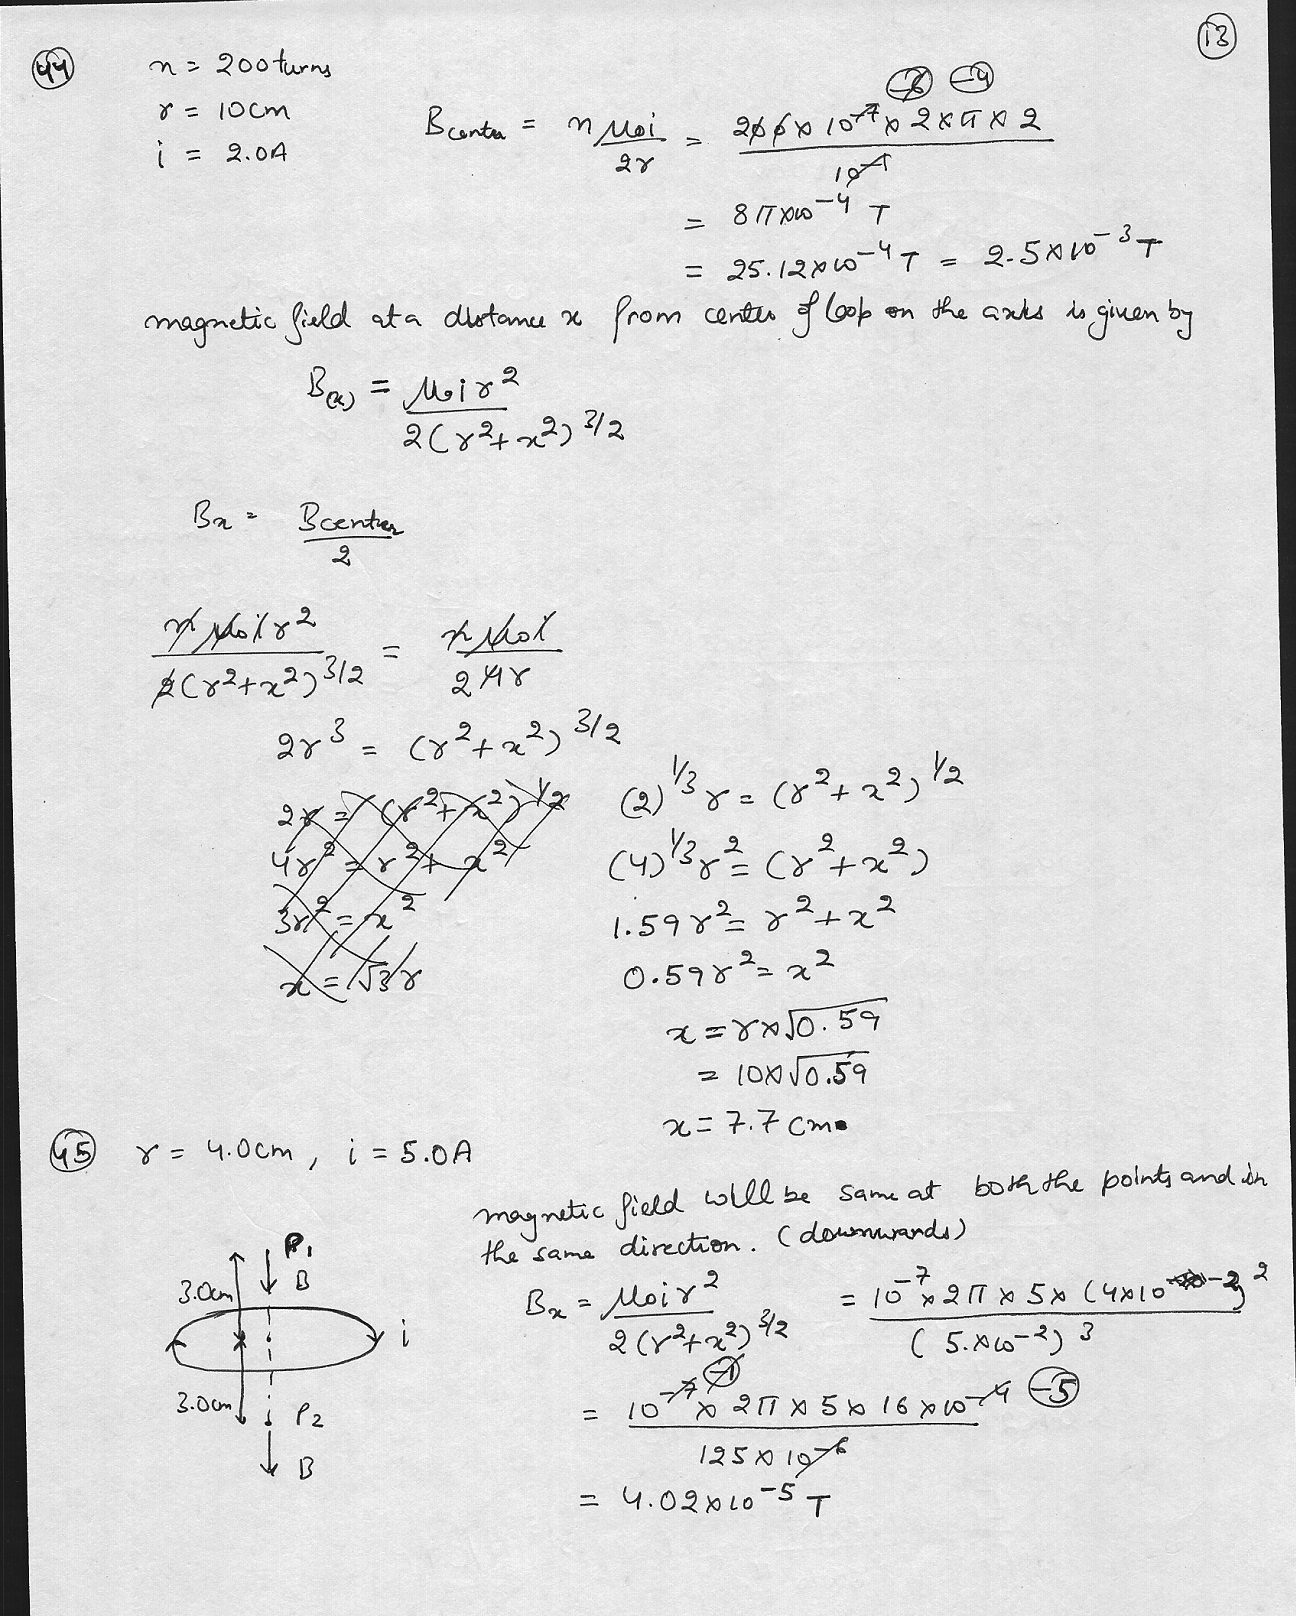 13
44 n = 200 turns
r = 10cm
i = 2.0A
Bcenter = n μ₀i / 2r = 200 × 10⁻⁷ × 2 × π × 2 / 10⁻¹
-6 -4
= 8π×10⁻⁴ T
= 25.12×10⁻⁴ T = 2.5×10⁻³ T
magnetic field at a distance x from center of loop on the axis is given by
B(x) = μ₀ i r² / 2(r²+x²)^3/2
Bx = Bcenter / 2
n μ₀ i r² / 2(r²+x²)^3/2 = n μ₀ i / 2 4r
2r³ = (r²+x²)^3/2
2r = (r²+x²)^1/2
4r² = r²+x²
3r² = x²
x = √3 r
(2)^1/3 r = (r²+x²)^1/2
(4)^1/3 r² = (r²+x²)
1.59r² = r²+x²
0.59r² = x²
x = r×√0.59
= 10×√0.59
x = 7.7 cm.
45 r = 4.0cm, i = 5.0A
magnetic field will be same at both the points and in
the same direction. (downwards)
P₁
3.0cm B
i
3.0cm P₂
B
Bx = μ₀ i r² / 2(r²+x²)^3/2 = 10⁻⁷ × 2π × 5 × (4×10⁻²)² / (5.×10⁻²)³
= 10⁻⁷ × 2π × 5 × 16 × 10⁻⁴ / 125 × 10⁻⁶
-1 -5
= 4.02×10⁻⁵ T